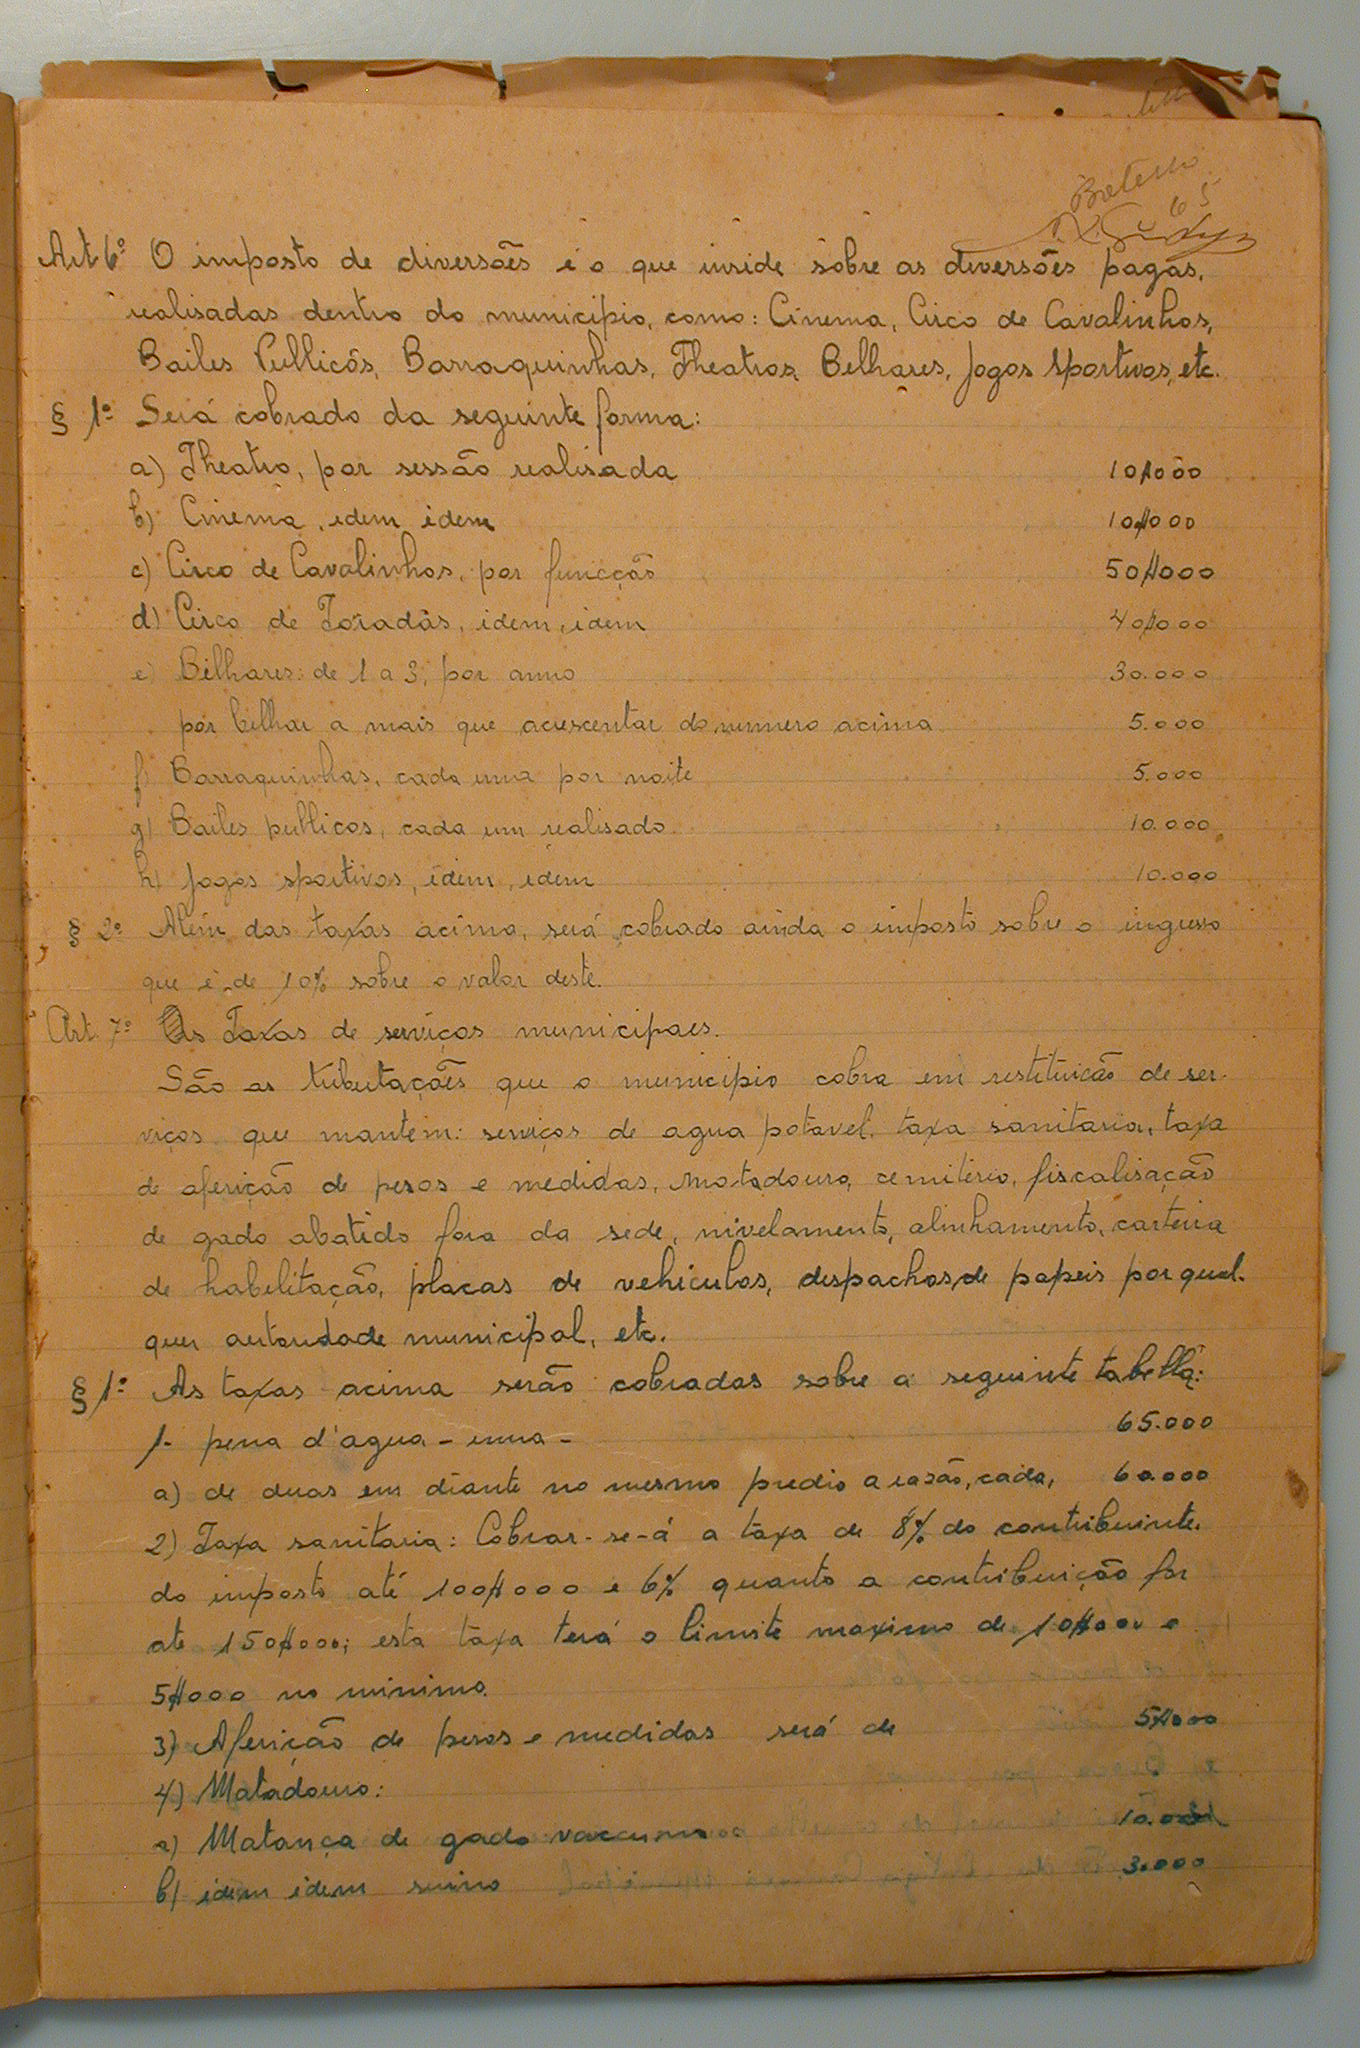 65
Art. 6º O imposto de diversões é o que inside sobre as diversões pagas,
realisadas dentro do municipio, como: Cinema, Circo de Cavalinhos,
Bailes Publicos, Barraquinhas, Theatros, Belhares, jogos sportivos, etc.
§ 1º Será cobrado da seguinte forma:
a) Theatro, por sessão realisada 10$000
b) Cinema, idem, idem 10$000
c) Circo de Cavalinhos, por funcção 50$000
d) Circo de Toradas, idem, idem 40$000
e) Bilhares: de 1 a 3, por anno 30.000
por bilhar a mais que acrescentar do numero acima 5.000
f) Barraquinhas, cada uma por noite 5.000
g) Bailes publicos, cada um realisado 10.000
h) jogos sportivos, idem, idem 10.000
§ 2º Alem das taxas acima, será cobrado ainda o imposto sobre o ingresso
que é de 10% sobre o valor deste.
Art. 7º As Taxas de serviços municipaes.
São as tributações que o municipio cobra em restituicão de ser-
viços que mantem: serviços de agua potavel, taxa sanitaria, taxa
de aferição de pesos e medidas, matadouro, cemiterio, fiscalisação
de gado abatido fora da sede, nivelamento, alinhamento, carteira
de habilitação, placas de vehiculos, despachos de papeis por qual-
quer autoridade municipal, etc.
§ 1º As taxas acima serão cobradas sobre a seguinte tabella:
1- pena d'agua - uma - 65.000
a) de duas em diante no mesmo predio a razão, cada, 60.000
2) Taxa sanitaria: Cobrar-se-á a taxa de 8% do contribuinte
do imposto até 100$000 e 6% quanto a contribuição for
até 150$000; esta taxa terá o limite maximo de 10$000 e
5$000 no minimo.
3) Aferição de pesos e medidas será de 5$000
4) Matadouro:
a) Matança de gado vaccum 10.000
b) idem idem suino 3.000